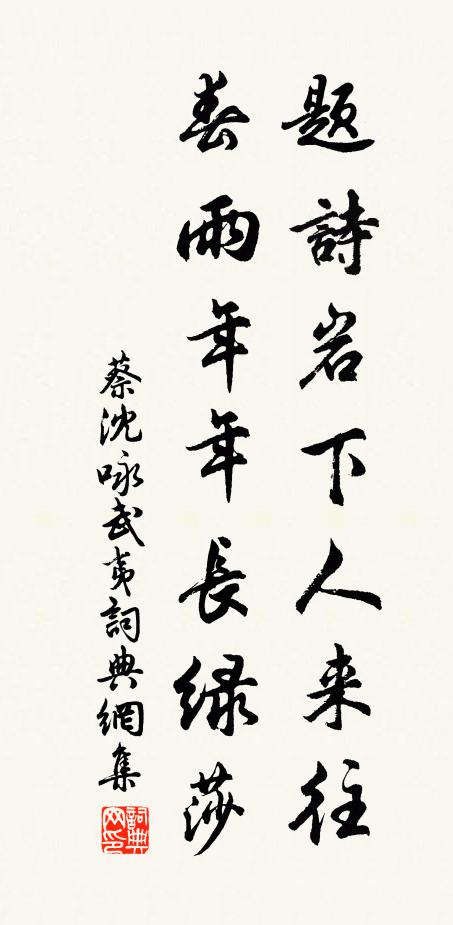 題詩岩下人来往
春雨年年長緑莎
蔡沈咏武夷詞典網集
詞典网印